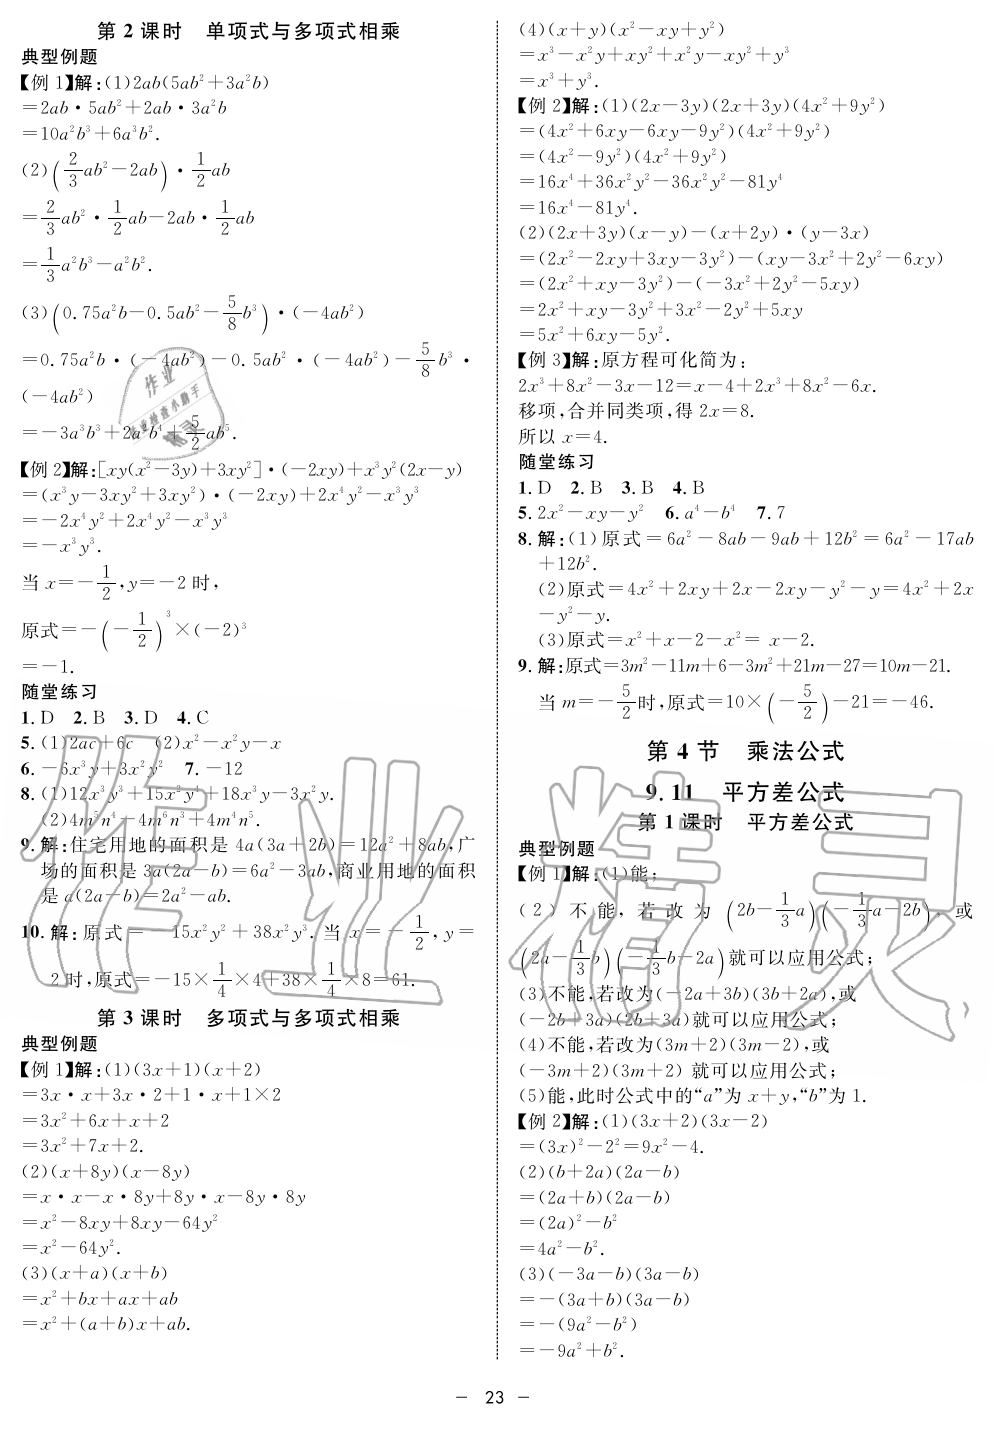 第 2 课时　单项式与多项式相乘
典型例题
【例 1】解:(1)2ab(5ab²+3a²b)
=2ab·5ab²+2ab·3a²b
=10a²b³+6a³b².
(2)(2/3 ab²-2ab)·1/2 ab
=2/3 ab²·1/2 ab-2ab·1/2 ab
=1/3 a²b³-a²b².
(3)(0.75a²b-0.5ab²-5/8 b³)·(-4ab²)
=0.75a²b·(-4ab²)-0.5ab²·(-4ab²)-5/8 b³·
(-4ab²)
=-3a³b³+2a²b⁴+5/2 ab⁵.
【例 2】解:[xy(x²-3y)+3xy²]·(-2xy)+x³y²(2x-y)
=(x³y-3xy²+3xy²)·(-2xy)+2x⁴y²-x³y³
=-2x⁴y²+2x⁴y²-x³y³
=-x³y³.
当 x=-1/2,y=-2 时,
原式=-(-1/2)³×(-2)³
=-1.
随堂练习
1.D　2.B　3.D　4.C
5.(1)2ac+6c　(2)x²-x²y-x
6.-6x³y+3x²y²　7.-12
8.(1)12x³y³+15x²y⁴+18x³y-3x²y.
(2)4m⁵n⁴-4m⁶n³+4m⁴n⁵.
9.解:住宅用地的面积是 4a(3a+2b)=12a²+8ab,广
场的面积是 3a(2a-b)=6a²-3ab,商业用地的面积
是 a(2a-b)=2a²-ab.
10.解:原式=-15x²y²+38x²y³.当 x=-1/2,y=
2时,原式=-15×1/4×4+38×1/4×8=61.
第 3 课时　多项式与多项式相乘
典型例题
【例 1】解:(1)(3x+1)(x+2)
=3x·x+3x·2+1·x+1×2
=3x²+6x+x+2
=3x²+7x+2.
(2)(x+8y)(x-8y)
=x·x-x·8y+8y·x-8y·8y
=x²-8xy+8xy-64y²
=x²-64y².
(3)(x+a)(x+b)
=x²+bx+ax+ab
=x²+(a+b)x+ab.
(4)(x+y)(x²-xy+y²)
=x³-x²y+xy²+x²y-xy²+y³
=x³+y³.
【例 2】解:(1)(2x-3y)(2x+3y)(4x²+9y²)
=(4x²+6xy-6xy-9y²)(4x²+9y²)
=(4x²-9y²)(4x²+9y²)
=16x⁴+36x²y²-36x²y²-81y⁴
=16x⁴-81y⁴.
(2)(2x+3y)(x-y)-(x+2y)·(y-3x)
=(2x²-2xy+3xy-3y²)-(xy-3x²+2y²-6xy)
=(2x²+xy-3y²)-(-3x²+2y²-5xy)
=2x²+xy-3y²+3x²-2y²+5xy
=5x²+6xy-5y².
【例 3】解:原方程可化简为:
2x³+8x²-3x-12=x-4+2x³+8x²-6x.
移项,合并同类项,得 2x=8.
所以 x=4.
随堂练习
1.D　2.B　3.B　4.B
5.2x²-xy-y²　6.a⁴-b⁴　7.7
8.解:(1)原式=6a²-8ab-9ab+12b²=6a²-17ab
+12b².
(2)原式=4x²+2xy+2x-2xy-y²-y=4x²+2x
-y²-y.
(3)原式=x²+x-2-x²= x-2.
9.解:原式=3m²-11m+6-3m²+21m-27=10m-21.
当 m=-5/2时,原式=10×(-5/2)-21=-46.
第 4 节　乘法公式
9.11　平方差公式
第 1 课时　平方差公式
典型例题
【例 1】解:(1)能;
(2)不能,若改为(2b-1/3 a)(-1/3 a-2b),或
(2a-1/3 b)(-1/3 b-2a)就可以应用公式;
(3)不能,若改为(-2a+3b)(3b+2a),或
(-2b+3a)(2b+3a)就可以应用公式;
(4)不能,若改为(3m+2)(3m-2),或
(-3m+2)(3m+2) 就可以应用公式;
(5)能,此时公式中的“a”为 x+y,“b”为 1.
【例 2】解:(1)(3x+2)(3x-2)
=(3x)²-2²=9x²-4.
(2)(b+2a)(2a-b)
=(2a+b)(2a-b)
=(2a)²-b²
=4a²-b².
(3)(-3a-b)(3a-b)
=-(3a+b)(3a-b)
=-(9a²-b²)
=-9a²+b².
- 23 -
作业精灵
作业
作业检查小助手